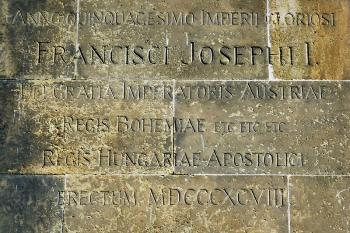 ANNO QUINQUAGESIMO IMPERII GLORIOSI
FRANCISCI JOSEPHI I.
DEI GRATIA IMPERATORIS AUSTRIAE
REGIS BOHEMIAE ETC ETC ETC
REGIS HUNGARIAE APOSTOLICI
ERECTUM MDCCCXCVIII